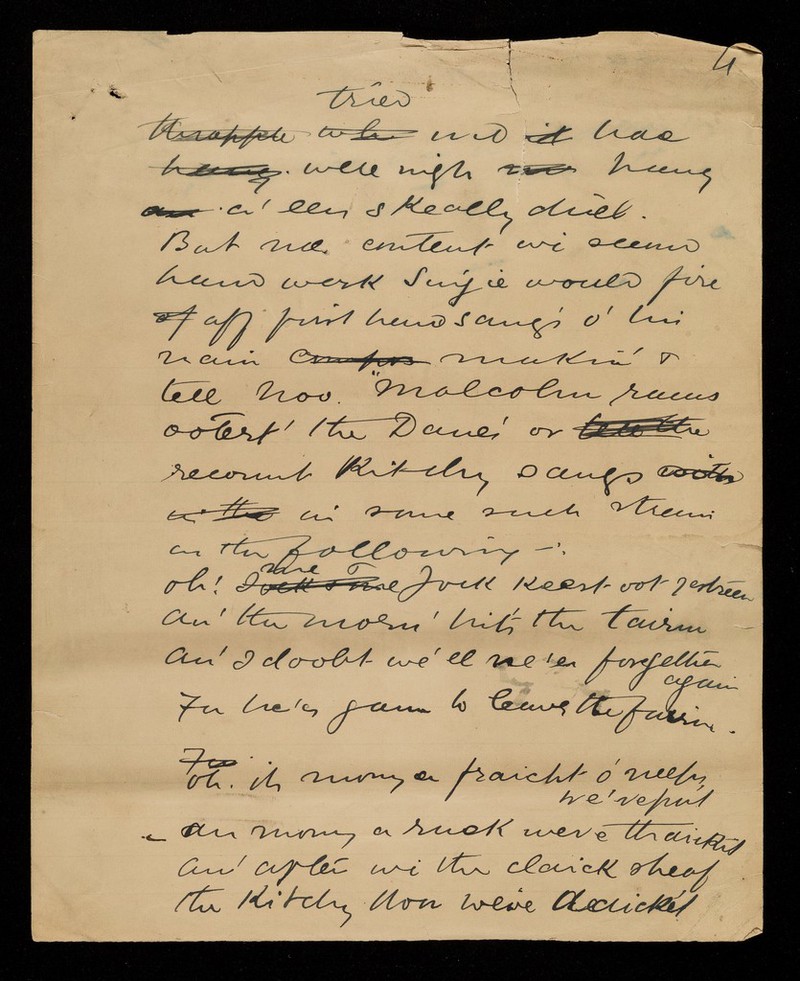 4
tried
thrapple whe and it had
hang. well nigh hung
a' een skeally duel.
But nae content wi second
hand work Singie would fire
of aff first hand sang's o' his
nain makin' &
tell hoo. "Malcolm raus
ooters' the Danes' or tell the
recount Kitchy sangs with
wi the in some such strain
as the following —:
oh! Jock & me me & Jock keest oot yestreen
An' the morn' hit's the tairm
An' I doobt we'll ne'er forgether
again
For he's gaun to leave the fairm.
For
oh. its mony a fraicht o' neeps
we've pu'd
an mony a ruck we've thaickit
an' after wi the claick sheaf
the Kitchy floor we've